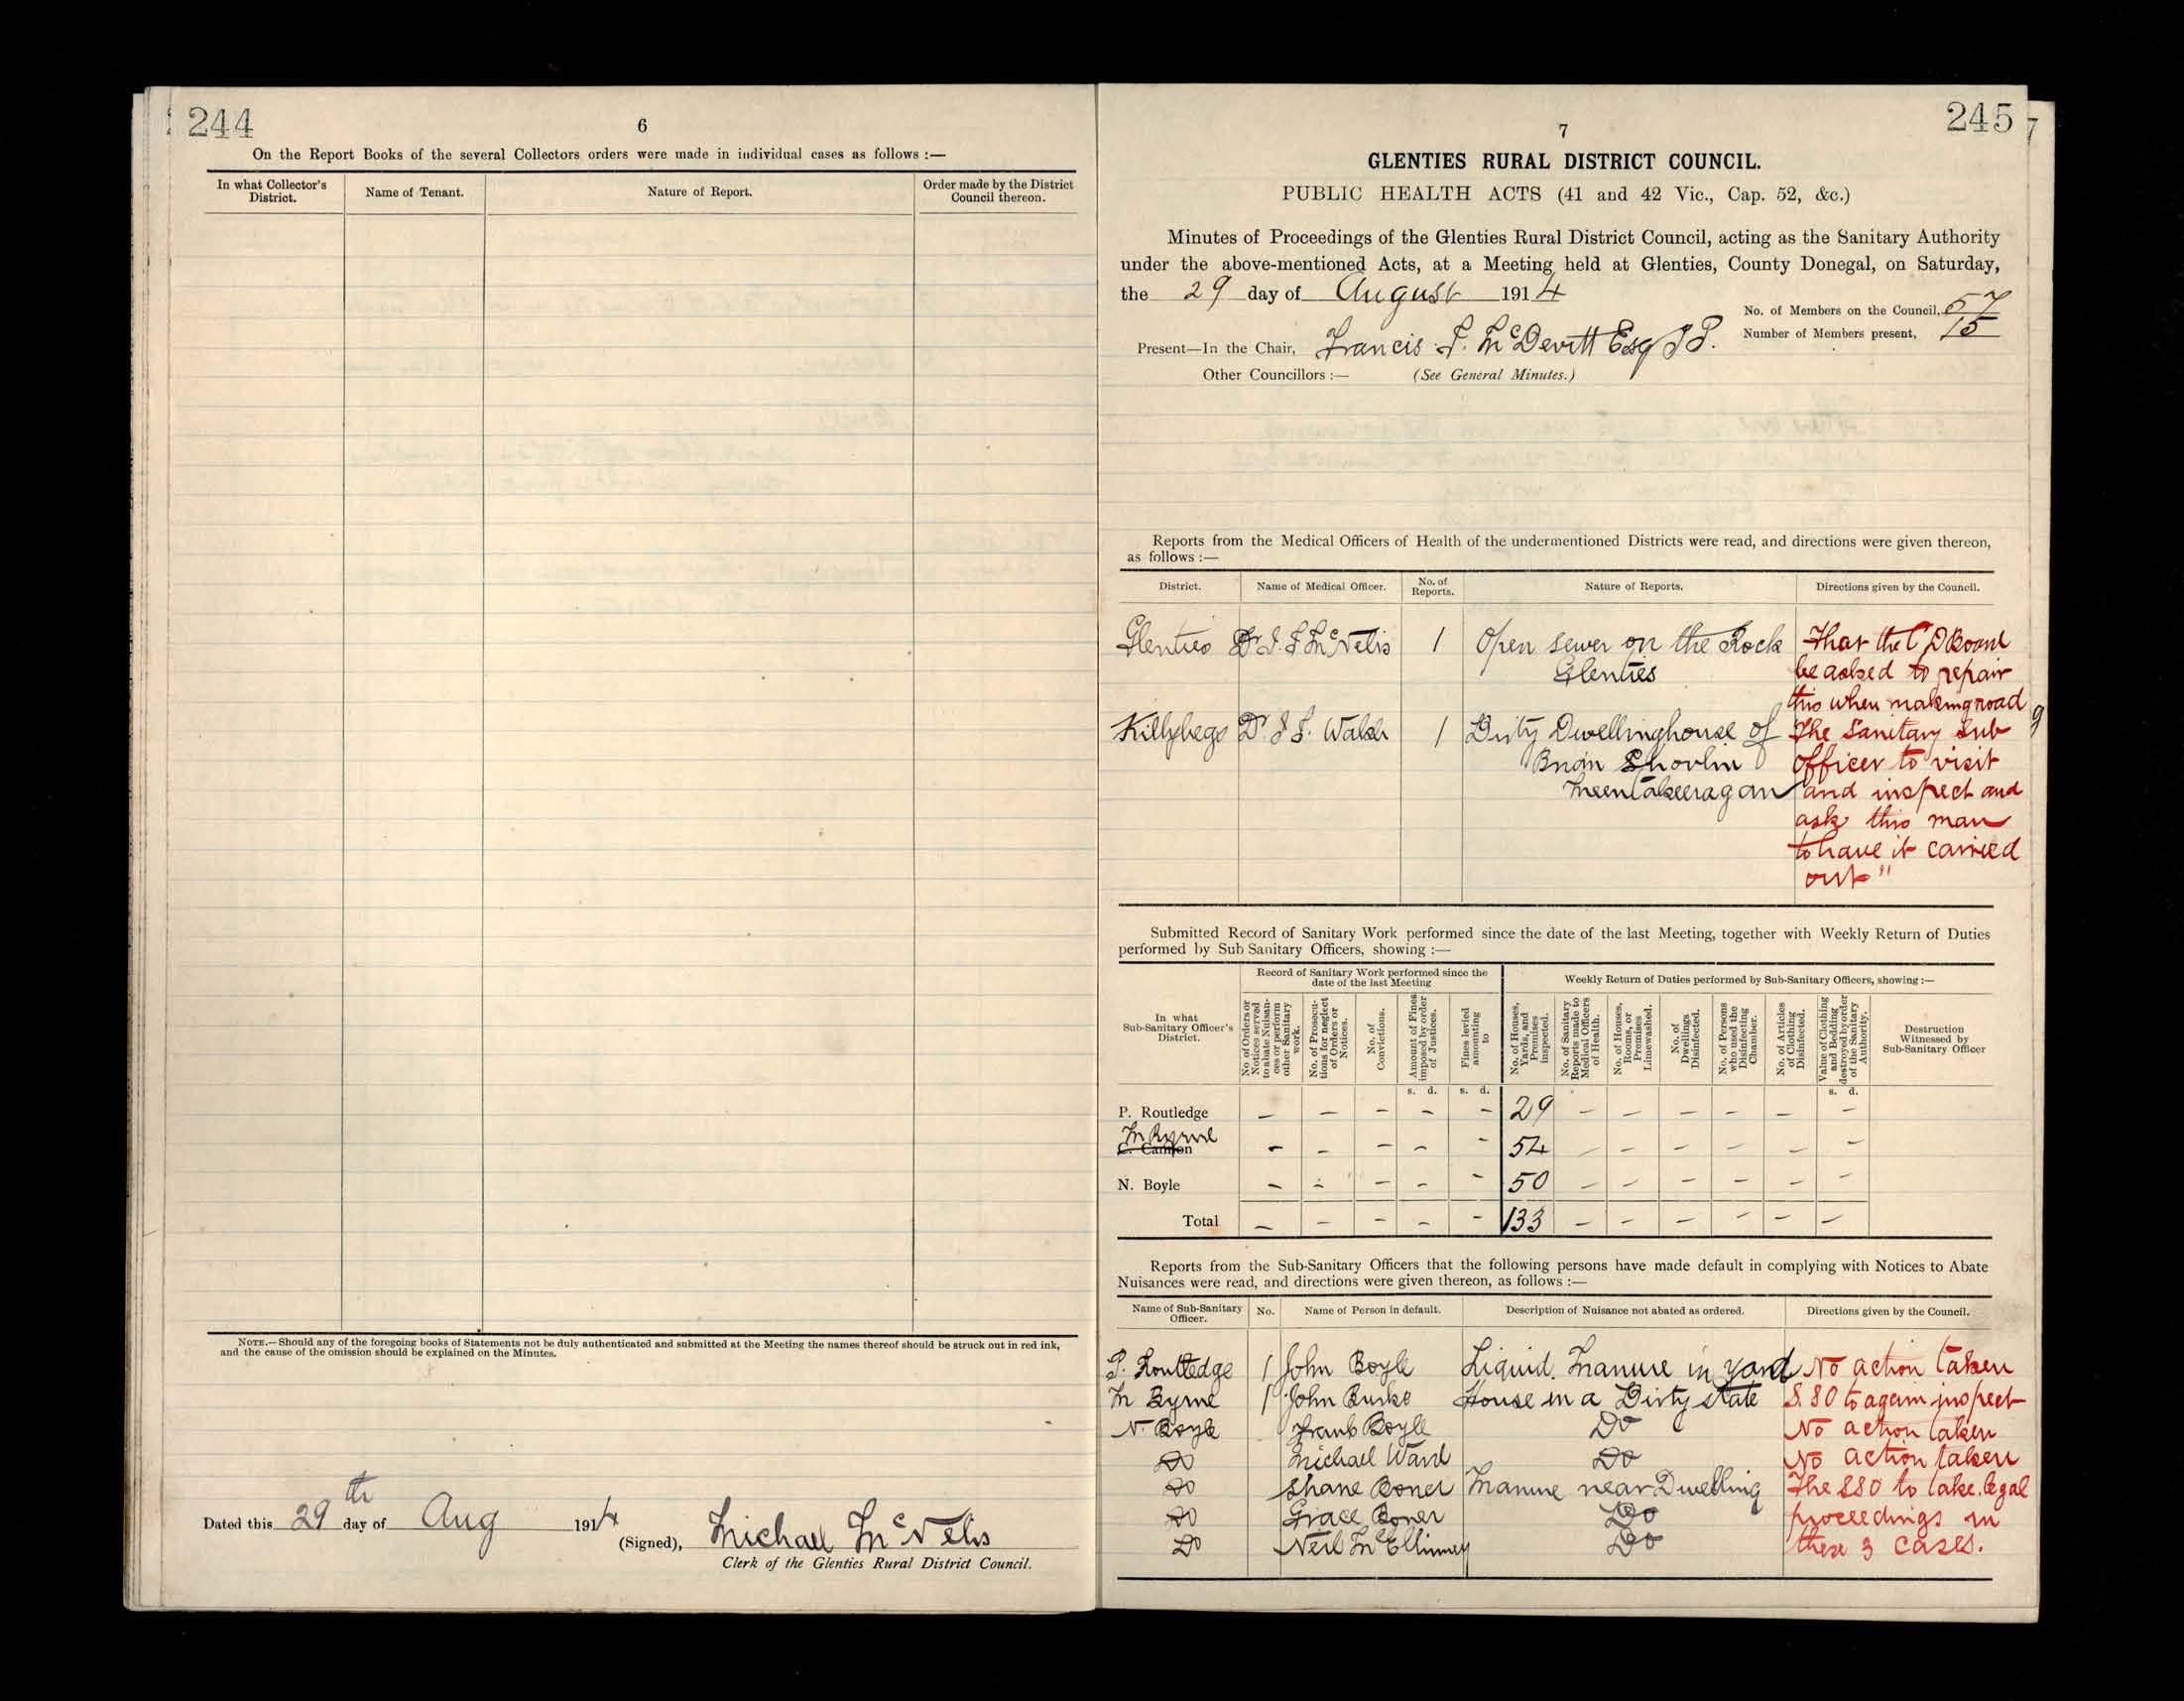 244
6
On the Report Books of the several Collectors orders were made in individual cases as follows :—
In what Collector's District.
Name of Tenant.
Nature of Report.
Order made by the District Council thereon.
NOTE.—Should any of the foregoing books of Statements not be duly authenticated and submitted at the Meeting the names thereof should be struck out in red ink,
and the cause of the omission should be explained on the Minutes.
Dated this 29th day of Aug 1914
(Signed), Michael McNelis
Clerk of the Glenties Rural District Council.
245
7
7
GLENTIES RURAL DISTRICT COUNCIL.
PUBLIC HEALTH ACTS (41 and 42 Vic., Cap. 52, &c.)
Minutes of Proceedings of the Glenties Rural District Council, acting as the Sanitary Authority
under the above-mentioned Acts, at a Meeting held at Glenties, County Donegal, on Saturday,
the 29 day of August 1914
No. of Members on the Council, 57
Number of Members present, 15
Present—In the Chair, Francis F. McDevitt Esq J P.
Other Councillors :— (See General Minutes.)
Reports from the Medical Officers of Health of the undermentioned Districts were read, and directions were given thereon,
as follows :—
District.
Name of Medical Officer.
No. of Reports.
Nature of Reports.
Directions given by the Council.
Glenties Dr J. F McNelis 1 Open sewer on the Rock That the C D Board
Glenties be asked to repair
this when making road
Killybegs Dr J F. Walsh 1 Dirty Dwellinghouse of The Sanitary Sub
Brian Shovlin Officer to visit
Meentakeeragan and inspect and
ask this man
to have it carried
out"
Submitted Record of Sanitary Work performed since the date of the last Meeting, together with Weekly Return of Duties
performed by Sub Sanitary Officers, showing :—
In what Sub-Sanitary Officer's District.
Record of Sanitary Work performed since the date of the last Meeting
Weekly Return of Duties performed by Sub-Sanitary Officers, showing :—
No of Orders or Notices served to abate Nuisances or perform other Sanitary work.
No. of Prosecutions for neglect of Orders or Notices.
No. of Convictions.
Amount of Fines imposed by order of Justices.
Fines levied amounting to
No. of Houses, Yards, and Premises inspected.
No. of Sanitary Reports made to Medical Officers of Health.
No. of Houses, Rooms, or Premises Limewashed.
No. of Dwellings Disinfected.
No. of Persons who used the Disinfecting Chamber.
No. of Articles of Clothing Disinfected.
Value of Clothing and Bedding destroyed by order of the Sanitary Authority.
Destruction Witnessed by Sub-Sanitary Officer
s. d. s. d. s. d.
P. Routledge — — — — — 29 — — — — — —
M Byrne
C. Cannon — — — — — 54 — — — — — —
N. Boyle — — — — — 50 — — — — — —
Total — — — — — 133 — — — — — —
Reports from the Sub-Sanitary Officers that the following persons have made default in complying with Notices to Abate
Nuisances were read, and directions were given thereon, as follows :—
Name of Sub-Sanitary Officer.
No.
Name of Person in default.
Description of Nuisance not abated as ordered.
Directions given by the Council.
P. Routledge 1 John Boyle Liquid Manure in yard No action taken
M Byrne 1 John Burke House in a Dirty state S. SO to again inspect
N. Boyle Frank Boyle Do No action taken
Do Michael Ward Do No action taken
Do Shane Boner Manure near Dwelling The SSO to take legal
Do Grace Boner Do proceedings in
Do Neil McElhinney Do these 3 cases.